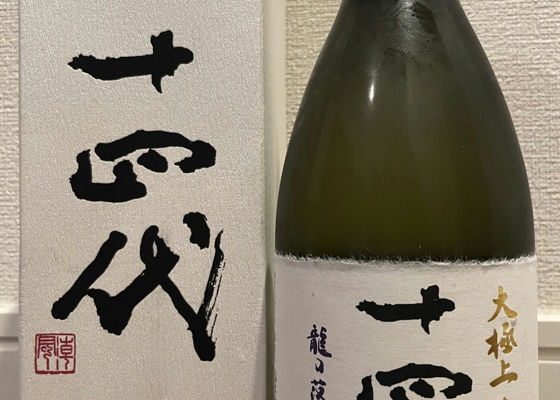 十四代
大極上
十四
龍の落